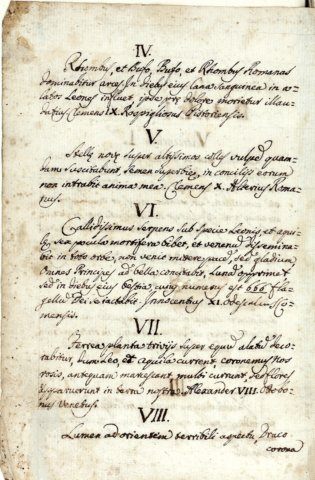 IV.
Rhombus, et Bufo, Bufo, et Rhombus Romanas
dominabitur arces. In diebus eius Luna sanguinem in
latos Leones influet, ipse pre dolore morietur illau
datus Clemens IX. Rospigliosus Pistoriensis.
V.
Stelle nove super altissimos colles vulpem quam
dam suscitabunt, semen superbie, in conciliis eorum
non intrabit anima mea. Clemens X. Alterius Roma
nus.
VI.
Callidissimus serpens sub specie Leonis, et
sea poculo mortifero bibet, et venenum disemina
bit in toto orbe, non venit misere pauces, sed gladium
Omnes Principes ad bella constabit, Luna opprimet
sed in diebus eius bestia, cuius numerus est 666. fla
gellum Dei excitabit. Innocentius XI. Odescalcus Co
mensis.
VII.
Ferrea planta trivijs super equum alatum deco
rabitur, Lum Leo, et aquila current coronemus nos
rosis, antequam marcescant, multi currunt, sed flores
apparuerunt in terra nostra. Alexander VIII. Ottobo
nus Venetus.
VIII.
Lumen ad orientem terribili aspectu, Draco
corona